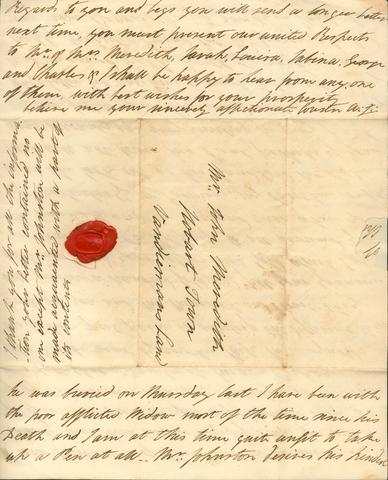 Regards to you and begs you will send a longer letter
next time, you must present our united Respects
to Mr. & Mrs. Meredith, Sarah, Louisa, Sabina, George
and Charles & I shall be happy to hear from any one
of them, with best wishes for your prosperity
believe me your sincerely affectionate Cousin
I thank you for all the informa
tion your letter contained no
one except Mr. Johnston will be
made acquainted with a part of
its contents
Mr. John Meredith
Hobart Town
Vandiemans Land
he was buried on Thursday last I have been with
the poor afflicted Widow most of the time since his
Death and I am at this time quite unfit to take
up a Pen at all.. Mr. Johnston desires his kindest